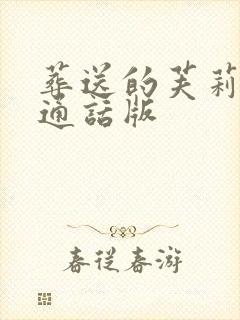 葬送的芙莉
通話版
春従春游